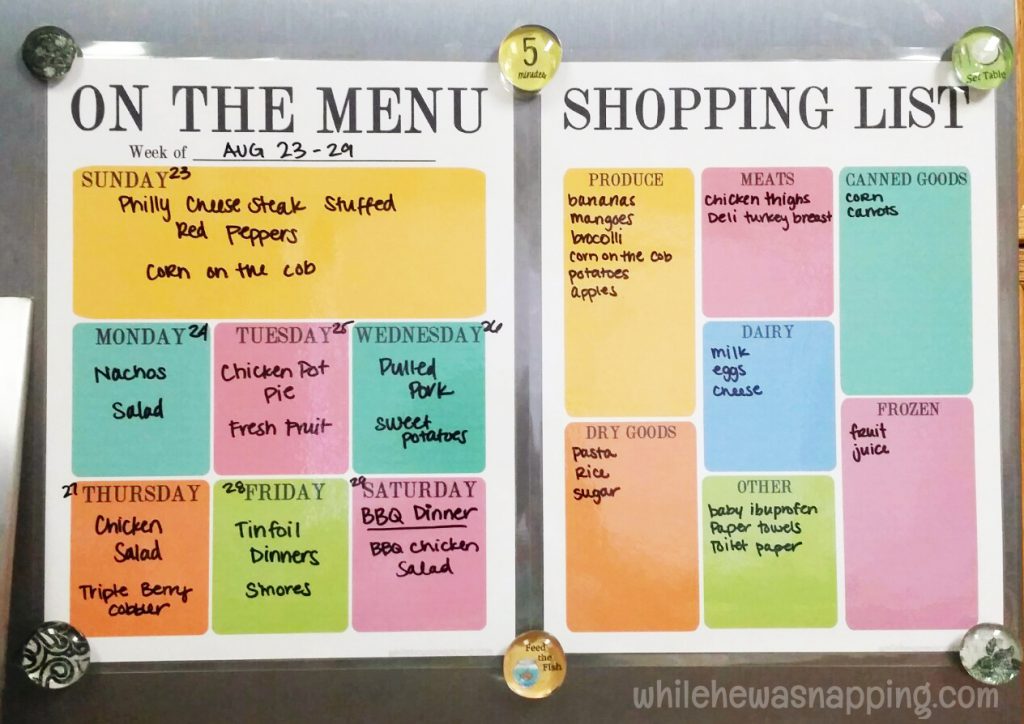 ON THE MENU
Week of AUG 23-29
SUNDAY 23
Philly Cheese Steak Stuffed
Red Peppers
Corn on the cob
MONDAY 24
Nachos
Salad
TUESDAY 25
Chicken Pot
Pie
Fresh Fruit
WEDNESDAY 26
Pulled
Pork
sweet
potatoes
27 THURSDAY
Chicken
Salad
Triple Berry
cobbler
28 FRIDAY
Tinfoil
Dinners
S'mores
29 SATURDAY
BBQ Dinner
BBQ chicken
Salad
5
minutes
Set Table
SHOPPING LIST
PRODUCE
bananas
mangoes
brocolli
corn on the cob
potatoes
apples
MEATS
chicken thighs
Deli turkey breast
CANNED GOODS
corn
carrots
DAIRY
milk
eggs
cheese
DRY GOODS
pasta
Rice
sugar
OTHER
baby ibuprofen
Paper towels
Toilet paper
FROZEN
fruit
juice
Feed
the
Fish
whilehewasnapping.com